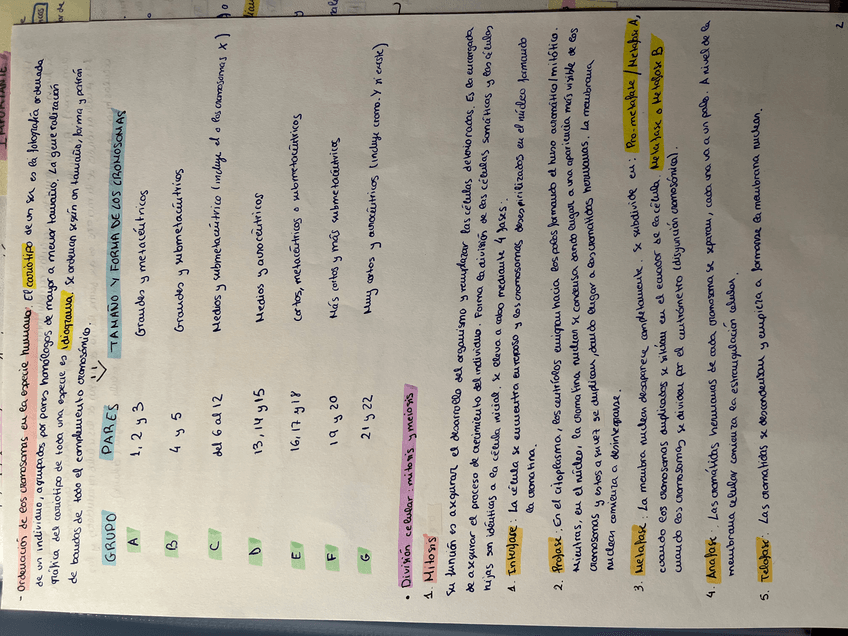 - Ordenación de los cromosomas en la especie humana: El cariotipo de un ser es la fotografía ordenada
de un individuo, agrupados por pares homólogos de mayor a menor tamaño. La generalización
gráfica del cariotipo de toda una especie es idiograma. Se ordenan según un tamaño, forma y patrón
de bandas de todo el complemento cromosómico.
GRUPO PARES TAMAÑO Y FORMA DE LOS CROMOSOMAS
A 1, 2 y 3 Grandes y metacéntricos
B 4 y 5 Grandes y submetacéntricos
C del 6 al 12 Medios y submetacéntrico (incluye el o los cromosomas X)
D 13, 14 y 15 Medios y acrocéntricos
E 16, 17 y 18 Cortos, metacéntricos o submetacéntricos
F 19 y 20 Más cortos y más submetacéntricos
G 21 y 22 Muy cortos y acrocéntricos (incluye cromo. Y si existe)
• División celular: mitosis y meiosis
1. Mitosis
Su función es asegurar el desarrollo del organismo y reemplazar las células deterioradas. Es la encargada
de asegurar el proceso de crecimiento del individuo. Forma la división de las células somáticas y las células
hijas son idénticas a la célula inicial. Se lleva a cabo mediante 4 fases:
1. Interfase: La célula se encuentra en reposo y los cromosomas desespirilizados en el núcleo formando
la cromatina.
2. Profase: En el citoplasma, los centríolos emigran hacia los polos formando el huso acromático/mitótico.
Mientras, en el núcleo, la cromatina nuclear se condensa dando lugar a una apariencia más visible de los
cromosomas y estos a su vez se duplican, dando lugar a las cromátidas hermanas. La membrana
nuclear comienza a desintegrarse.
3. Metafase: La membrana nuclear desaparece completamente. Se subdivide en: Pro-metafase/Metafase A,
cuando los cromosomas duplicados se sitúan en el ecuador de la célula, Metafase o Metafase B
cuando los cromosomas se dividen por el centrómero (disyunción cromosómica).
4. Anafase: Las cromátidas hermanas de cada cromosoma se separan, cada una va a un polo. A nivel de la
membrana celular comienza la estrangulación celular.
5. Telofase: Las cromátidas se descondensan y empieza a formarse la membrana nuclear.
2